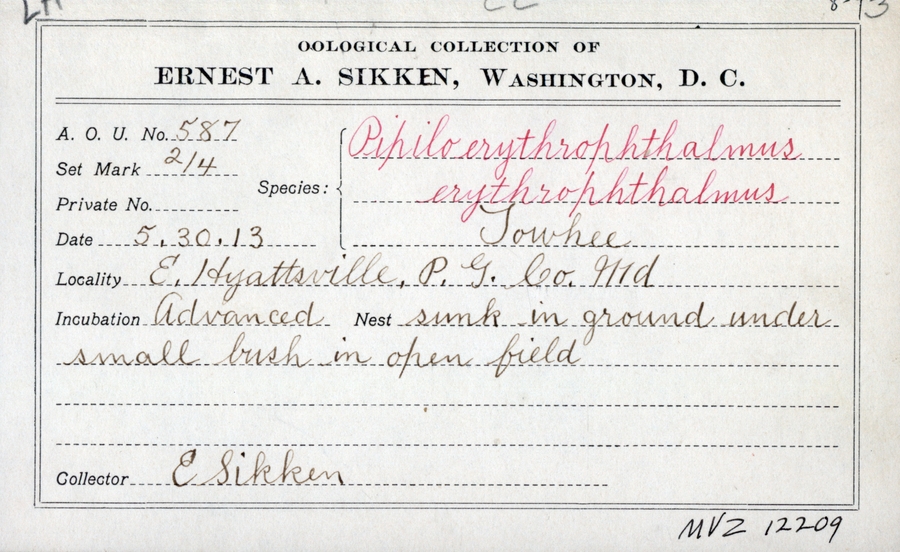 OOLOGICAL COLLECTION OF
ERNEST A. SIKKEN, WASHINGTON, D. C.
A. O. U. No. 587
Set Mark 2/4
Private No.
Date 5.30.13
Species: Pipilo erythrophthalmus
erythrophthalmus
Towhee
Locality E. Hyattsville, P. G. Co. Md
Incubation Advanced Nest sunk in ground under
small bush in open field
Collector E Sikken
MVZ 12209